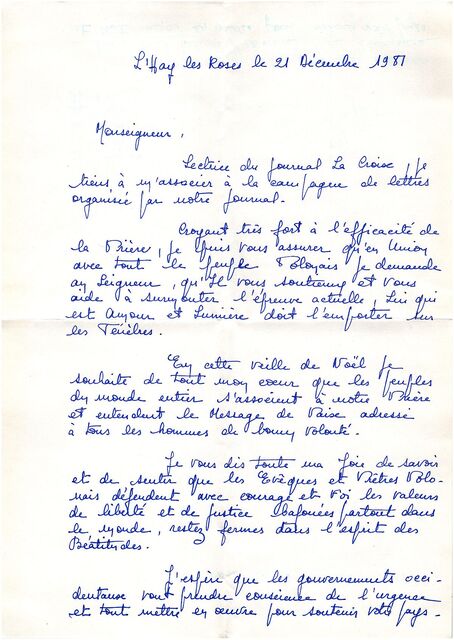 L'Haÿ les Roses le 21 Décembre 1981
Monseigneur,
Lectrice du Journal La Croix, je
tiens à m'associer à la campagne de lettres
organisée par notre Journal.
Croyant très fort à l'efficacité de
la Prière, je puis vous assurer qu'en Union
avec tout le peuple Polonais je demande
au Seigneur, qu'Il vous soutienne et vous
aide à surmonter l'épreuve actuelle, Lui qui
est Amour et Lumière doit l'emporter sur
les Ténèbres.
En cette veille de Noël je
souhaite de tout mon coeur que les peuples
du monde entier s'associent à notre Prière
et entendent le Message de Paix adressé
à tous les hommes de bonne volonté.
Je vous dis toute ma Joie de savoir
et de sentir que les Evêques et Prêtres Polo-
nais défendent avec courage et Foi les valeurs
de liberté et de justice bafouées partout dans
le monde, restez fermes dans l'esprit des
Béatitudes.
J'espère que les gouvernements occi-
dentaux vont prendre conscience de l'urgence
et tout mettre en oeuvre pour soutenir votre pays.